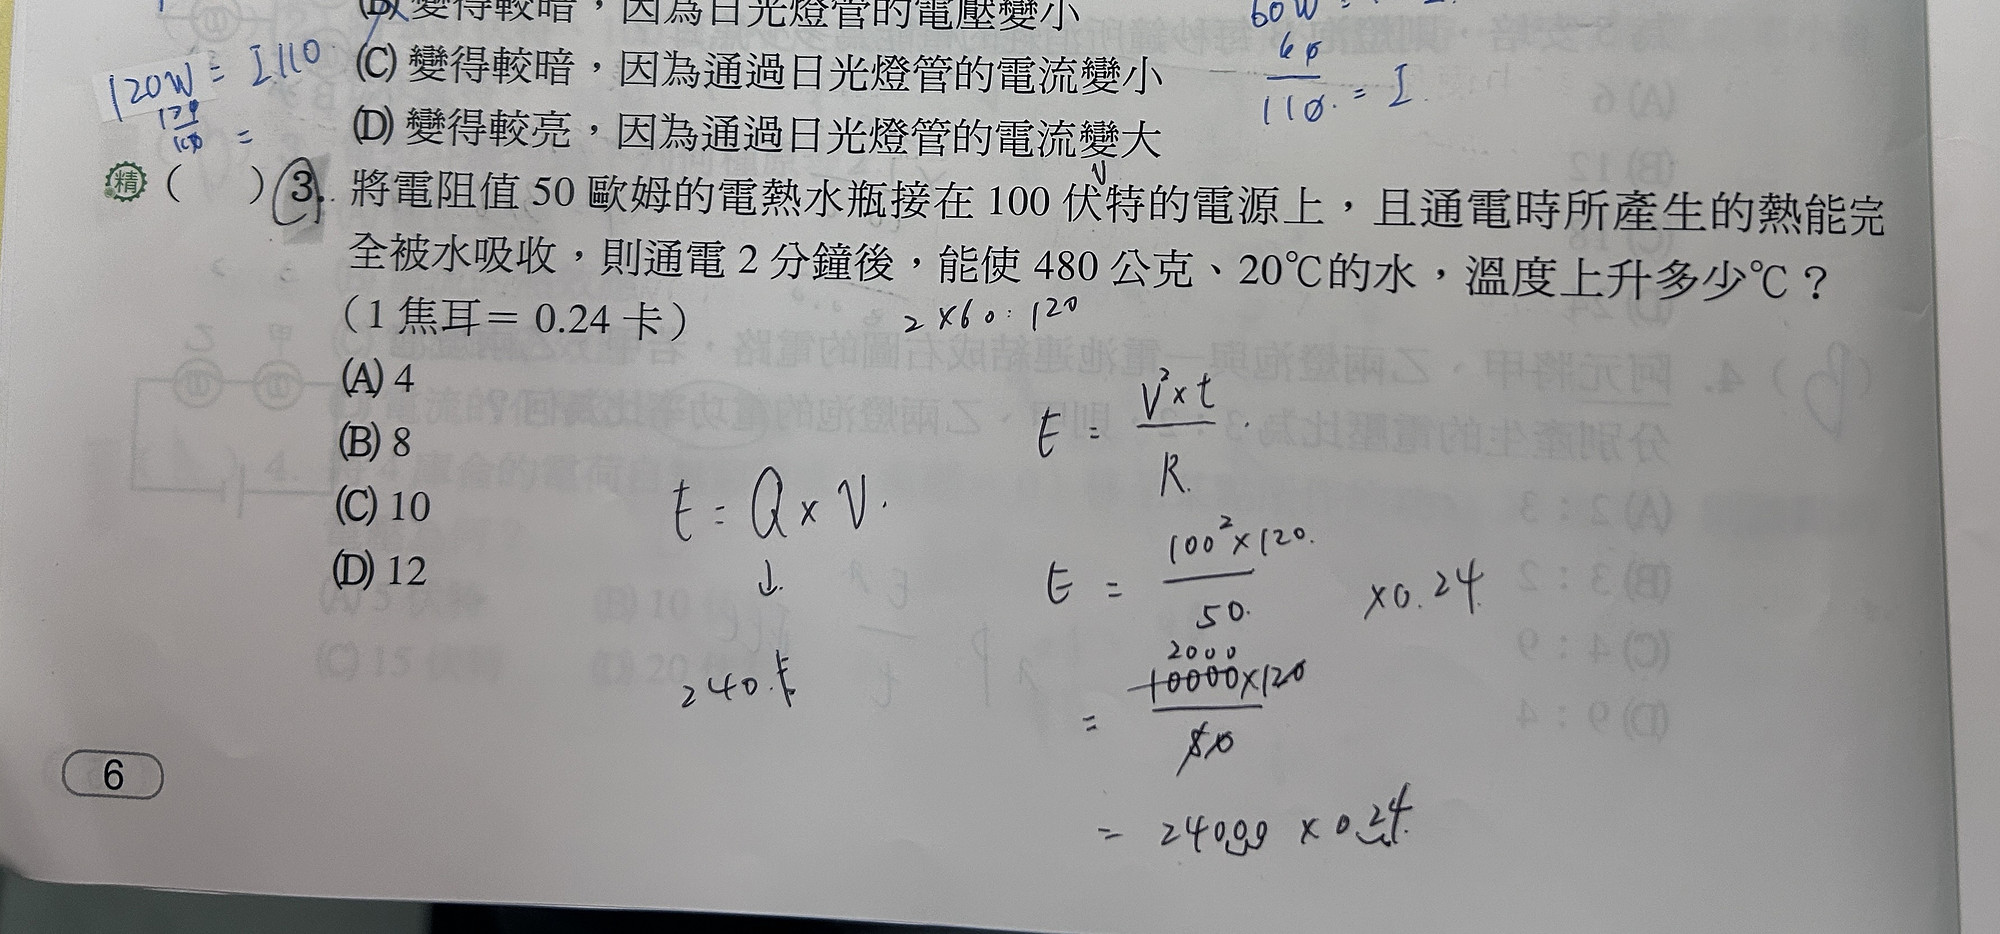 (B) 變得較暗，因為日光燈管的電壓變小
60W =
120W = I 110
(C) 變得較暗，因為通過日光燈管的電流變小
60
110 = I
120
100 =
(D) 變得較亮，因為通過日光燈管的電流變大
精 (　) 3. 將電阻值 50 歐姆的電熱水瓶接在 100 伏特的電源上，且通電時所產生的熱能完
V
全被水吸收，則通電 2 分鐘後，能使 480 公克、20℃的水，溫度上升多少℃？
（1 焦耳＝ 0.24 卡）
2×60 : 120
(A) 4
(B) 8
(C) 10
(D) 12
E = Q × V.
↓.
240.卡
E = V²×t
R.
E = 100²×120. ×0.24
50.
2000
= 10000×120
50
= 24000 × 0.24.
6